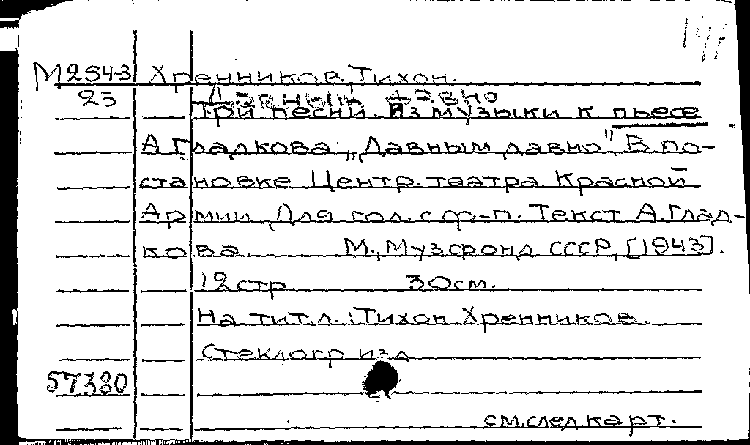 М254-3 Хренников, Тихон.
25 Давным давно
Три песни. Из музыки к пьесе
А.Гладкова „Давным давно" В по-
становке Центр. театра Красной
Армии. Для гол. с ф-п. Текст А.Глад-
кова. М., Музфонд СССР, [1943].
12 стр 30 см.
На тит.л.: Тихон Хренников.
Стеклогр изд
57380
см.след.карт.